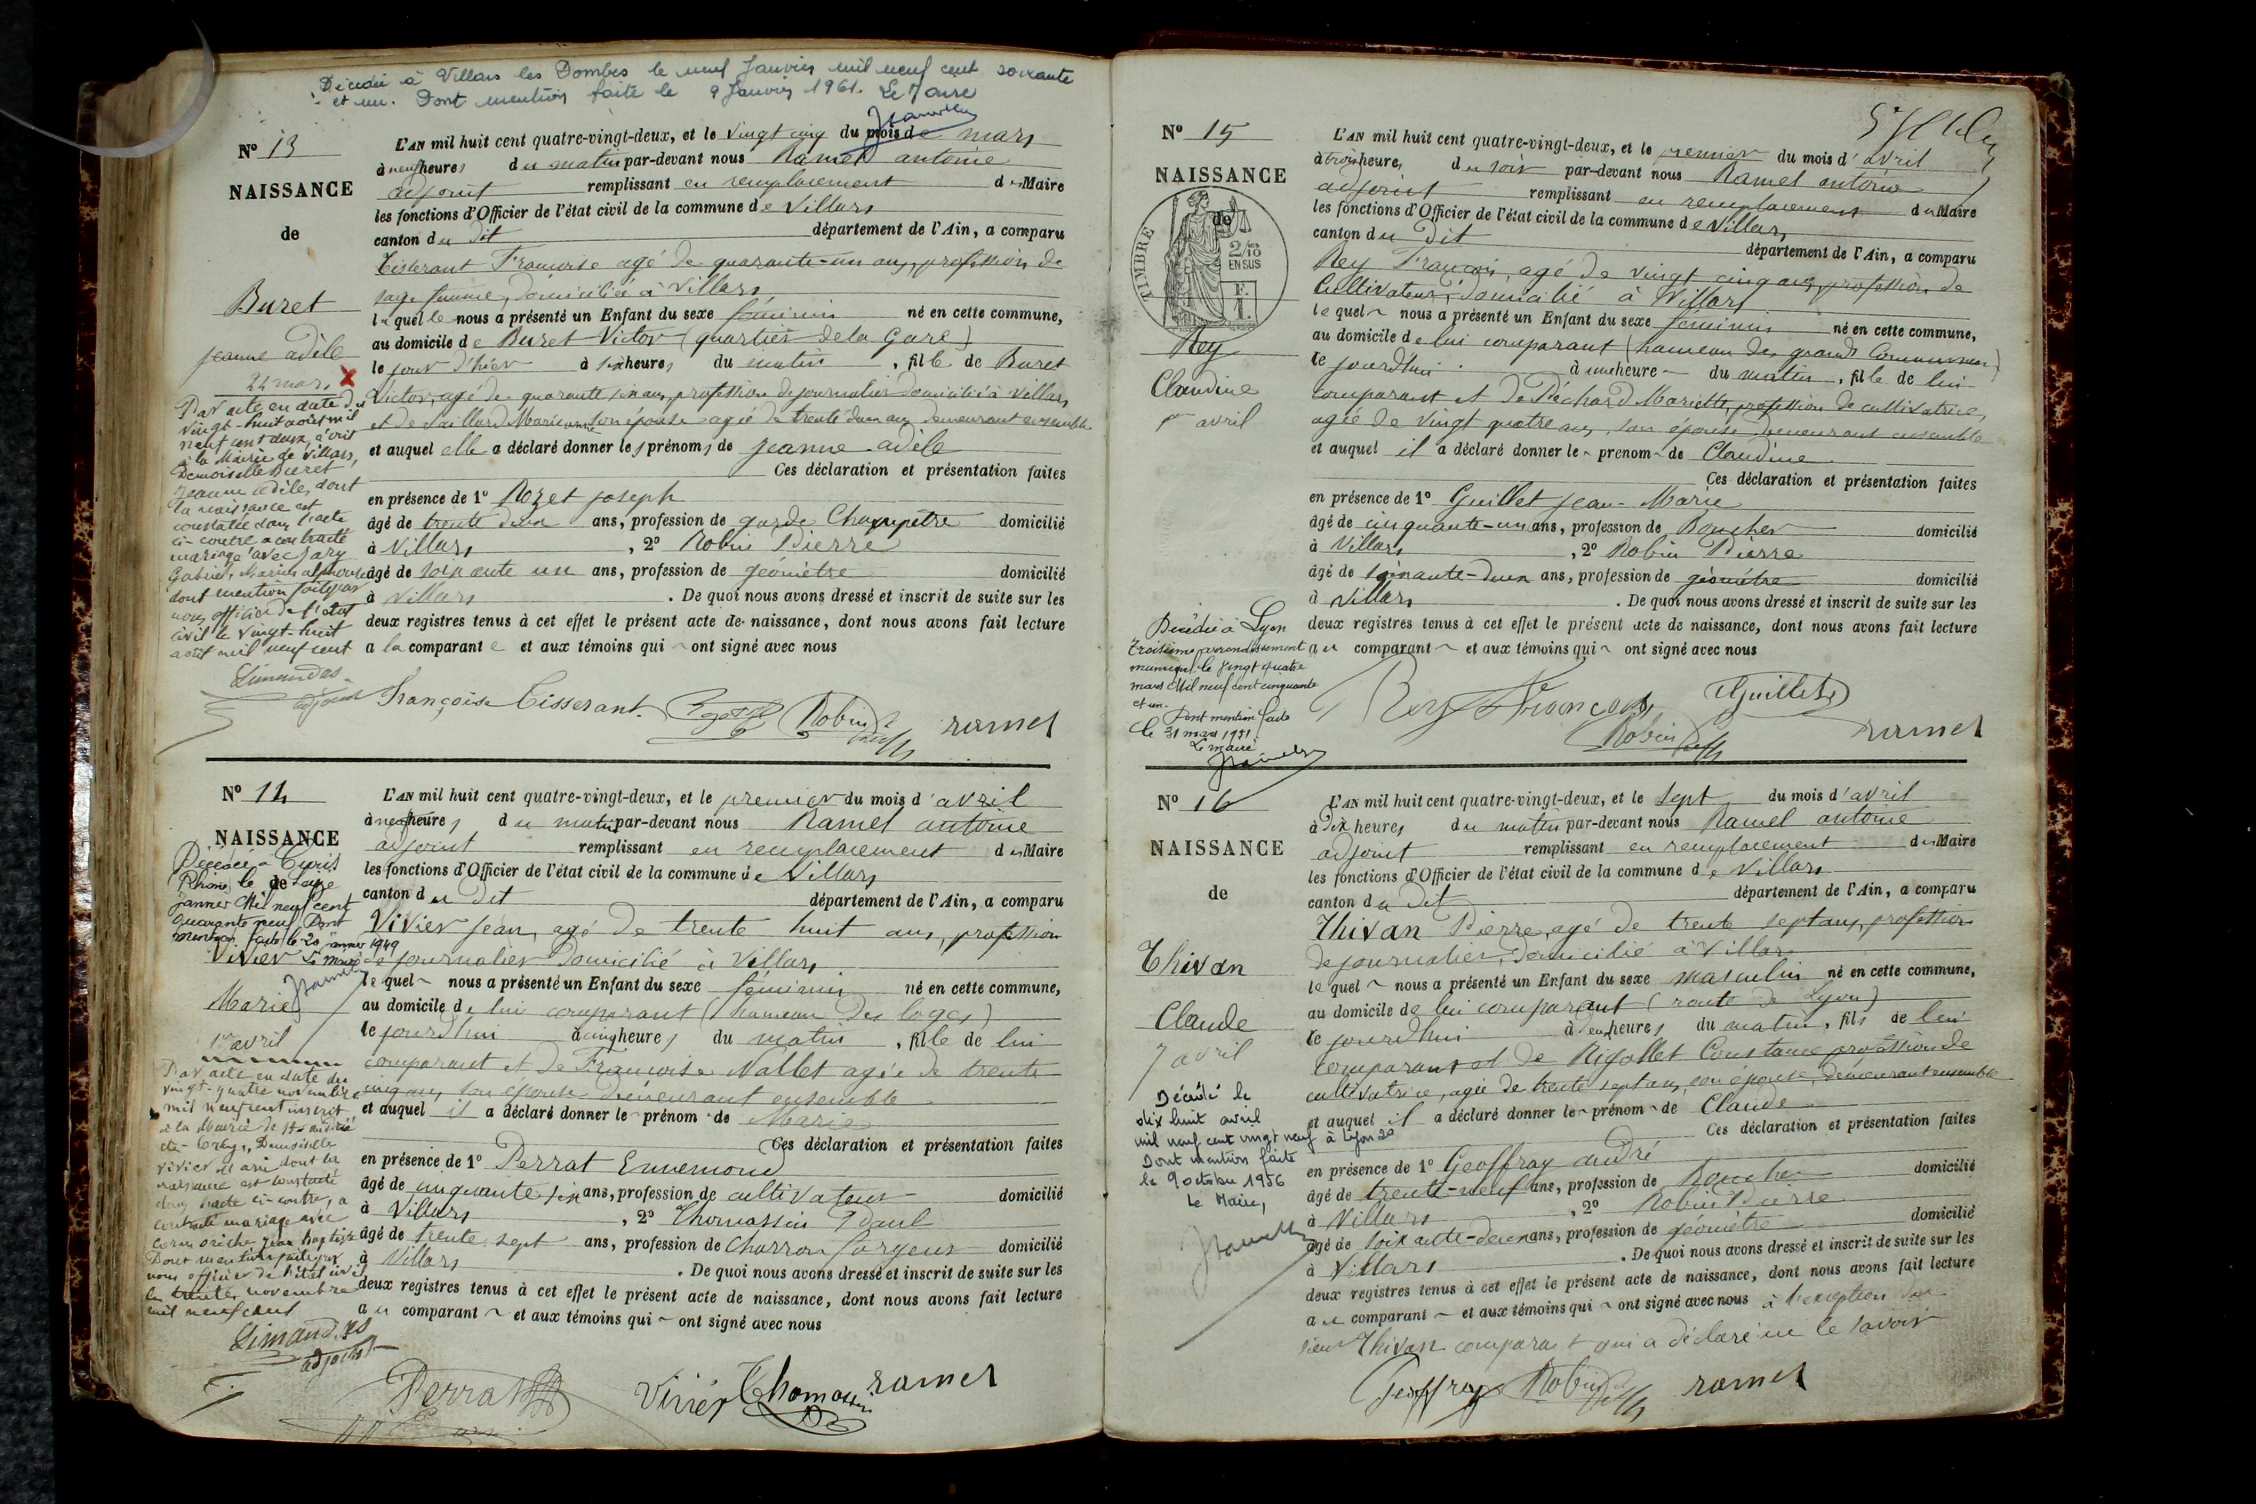 Décédée à Villars les Dombes le neuf Janvier mil neuf cent soixante
et un. Dont mention faite le 9 Janvier 1961. Le Maire
N° 13
NAISSANCE
de
Buret
jeanne adèle
24 mars
Par acte en date du
vingt-huit août mil
neuf cent deux, écrit
à la Mairie de Villars,
Demoiselle Buret
Jeanne adèle, dont
la naissance est
constatée dans l'acte
ci-contre a contracté
mariage avec Jary
Gabriel, Marius alphonse
dont mention faite par
nous officier de l'état
civil le vingt-huit
août mil neuf cent
Limandas
adjoint
L'AN mil huit cent quatre-vingt-deux, et le vingt cinq du mois de mars
à neuf heures du matin par-devant nous Ramel antoine
adjoint remplissant en remplacement du Maire
les fonctions d'Officier de l'état civil de la commune de Villars
canton du dit département de l'Ain, a comparu
Tisserant Françoise agé de quarante-un ans, profession de
sage femme, domiciliée à Villars
laquelle nous a présenté un Enfant du sexe féminin né en cette commune,
au domicile de Buret Victor (quartier de la Gare)
le jour d'hier à six heures du matin, fille de Buret
Victor, agé de quarante six ans, profession de journalier domicilié à Villars
et de Vaillard Marie anne son épouse agée de trente deux ans demeurant ensemble
et auquel elle a déclaré donner les prénoms de jeanne adèle
Ces déclaration et présentation faites
en présence de 1° Rozet joseph
âgé de trente deux ans, profession de garde Champêtre domicilié
à Villars, 2° Robin Pierre
âgé de soixante un ans, profession de géomètre domicilié
à Villars. De quoi nous avons dressé et inscrit de suite sur les
deux registres tenus à cet effet le présent acte de naissance, dont nous avons fait lecture
a la comparante et aux témoins qui ont signé avec nous
Françoise Tisserant. Rozet Robin ramel
N° 14
NAISSANCE
de
Décédée à Curis
Rhône le Seize
janvier Mil neuf cent
quarante neuf Dont
mention faite le 20 janvier 1949
Le Maire
Vivier
Marie
1er avril
Par acte en date du
vingt-quatre novembre
mil neuf cent inscrit
à la Mairie de St andré
de Corcy, Demoiselle
vivier Marie dont la
naissance est constatée
dans l'acte ci-contre, a
contracté mariage avec
Jean Baptiste
Dont mention faite par
nous officier de l'état civil
le trente novembre
mil neuf cent
Limandas
adjoint
L'AN mil huit cent quatre-vingt-deux, et le premier du mois d'avril
à neuf heures du matin par-devant nous Ramel antoine
adjoint remplissant en remplacement du Maire
les fonctions d'Officier de l'état civil de la commune de Villars
canton du dit département de l'Ain, a comparu
Vivier Jean, agé de trente huit ans, profession
de journalier Domicilié à Villars
lequel nous a présenté un Enfant du sexe féminin né en cette commune,
au domicile de lui comparant (hameau des loges)
le jourd'hui à cinq heures du matin, fille de lui
comparant et de Françoise Nallet agée de trente
cinq ans, son épouse demeurant ensemble
et auquel il a déclaré donner le prénom de Marie
Ces déclaration et présentation faites
en présence de 1° Perrat Ennemond
âgé de cinquante six ans, profession de cultivateur domicilié
à Villars, 2° Thomassin Paul
âgé de trente sept ans, profession de Charron forgeur domicilié
à Villars. De quoi nous avons dressé et inscrit de suite sur les
deux registres tenus à cet effet le présent acte de naissance, dont nous avons fait lecture
au comparant et aux témoins qui ont signé avec nous
Perrat Vivier Thomassin ramel
N° 15
NAISSANCE
de
TIMBRE
2/10
EN SUS
F.
1.
Rey
Claudine
1er avril
Décédée à Lyon
troisième arrondissement
municipal le vingt quatre
mars Mil neuf cent cinquante
et un.
Dont mention faite
le 31 mars 1951
Le maire
L'AN mil huit cent quatre-vingt-deux, et le premier du mois d'avril
à trois heures du soir par-devant nous Ramel antoine
adjoint remplissant en remplacement du Maire
les fonctions d'Officier de l'état civil de la commune de Villars
canton du dit département de l'Ain, a comparu
Rey François, agé de vingt cinq ans, profession de
Cultivateur, domicilié à Villars
lequel nous a présenté un Enfant du sexe féminin né en cette commune,
au domicile de lui comparant (hameau des grands Communaux)
le jourd'hui à une heure du matin, fille de lui
comparant et de Péchard Mariette, profession de cultivatrice,
agée de vingt quatre ans, son épouse, demeurant ensemble
et auquel il a déclaré donner le prenom de Claudine
Ces déclaration et présentation faites
en présence de 1° Guillet Jean-Marie
âgé de cinquante-un ans, profession de Boucher domicilié
à Villars, 2° Robin Pierre
âgé de soixante-deux ans, profession de géomètre domicilié
à Villars. De quoi nous avons dressé et inscrit de suite sur les
deux registres tenus à cet effet le présent acte de naissance, dont nous avons fait lecture
au comparant et aux témoins qui ont signé avec nous
Rey François Guillet
Robin ramel
N° 16
NAISSANCE
de
Thivan
Claude
7 avril
Décédé le
dix huit avril
mil neuf cent vingt neuf à Lyon 2e
Dont mention faite
le 9 octobre 1956
Le Maire,
L'AN mil huit cent quatre-vingt-deux, et le sept du mois d'avril
à dix heures du matin par-devant nous Ramel antoine
adjoint remplissant en remplacement du Maire
les fonctions d'Officier de l'état civil de la commune de Villars
canton du dit département de l'Ain, a comparu
Thivan Pierre, agé de trente sept ans, profession
de journalier, domicilié à Villars
lequel nous a présenté un Enfant du sexe masculin né en cette commune,
au domicile de lui comparant (route de Lyon)
le jourd'hui à deux heures du matin, fils de lui
comparant et de Rigollet Constance profession de
cultivatrice, agée de trente sept ans, son épouse, demeurant ensemble
et auquel il a déclaré donner le prénom de Claude
Ces déclaration et présentation faites
en présence de 1° Geoffray andré
âgé de trente-neuf ans, profession de Boucher domicilié
à Villars, 2° Robin Pierre
âgé de soixante-deux ans, profession de géomètre domicilié
à Villars. De quoi nous avons dressé et inscrit de suite sur les
deux registres tenus à cet effet le présent acte de naissance, dont nous avons fait lecture
au comparant et aux témoins qui ont signé avec nous à l'exception du
sieur Thivan comparant qui a déclaré ne le savoir
Geoffray Robin ramel